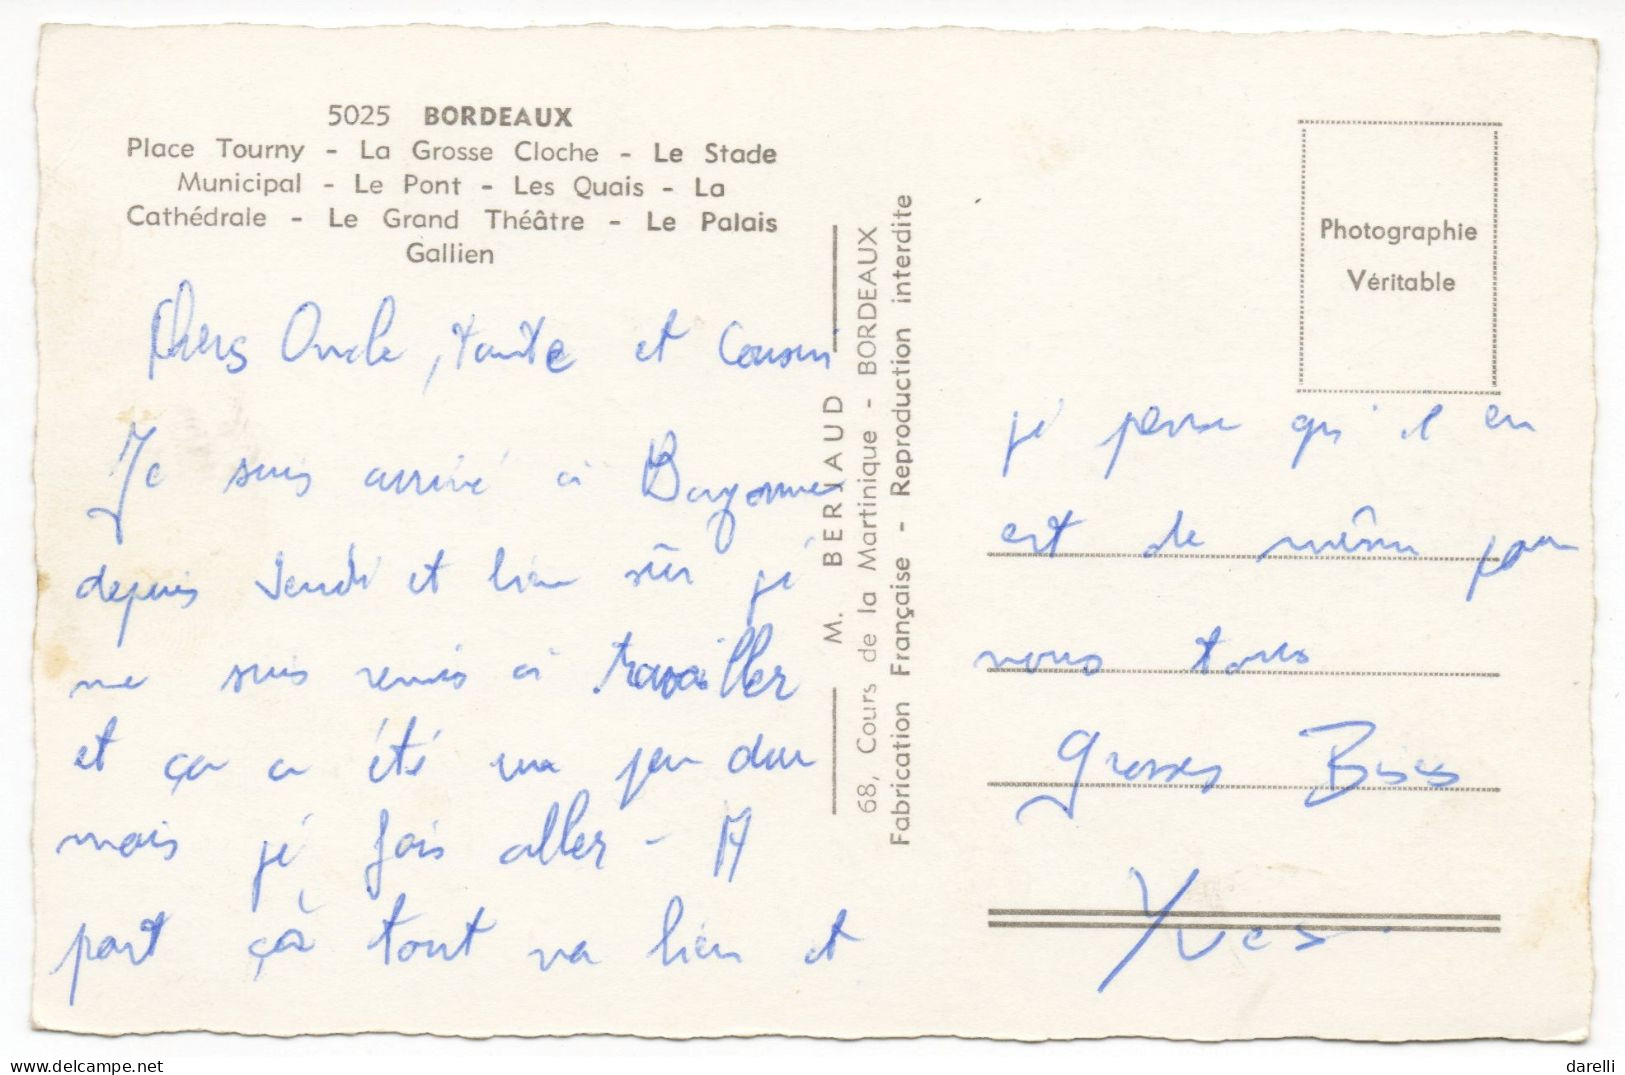 5025 BORDEAUX
Place Tourny - La Grosse Cloche - Le Stade
Municipal - Le Pont - Les Quais - La
Cathédrale - Le Grand Théâtre - Le Palais
Gallien
Chers Oncle, tante et Cousin
Je suis arrivé à Bayonne
depuis Jeudi et bien sûr je
me suis remis à travailler
et ça a été un peu dur
mais je fais aller - A
part çà tout va bien et
M. BERJAUD
68, Cours de la Martinique - BORDEAUX
Fabrication Française - Reproduction interdite
Photographie
Véritable
je pense qu'il en
est de même pour
vous tous
grosses Bises
Yves.
darelli